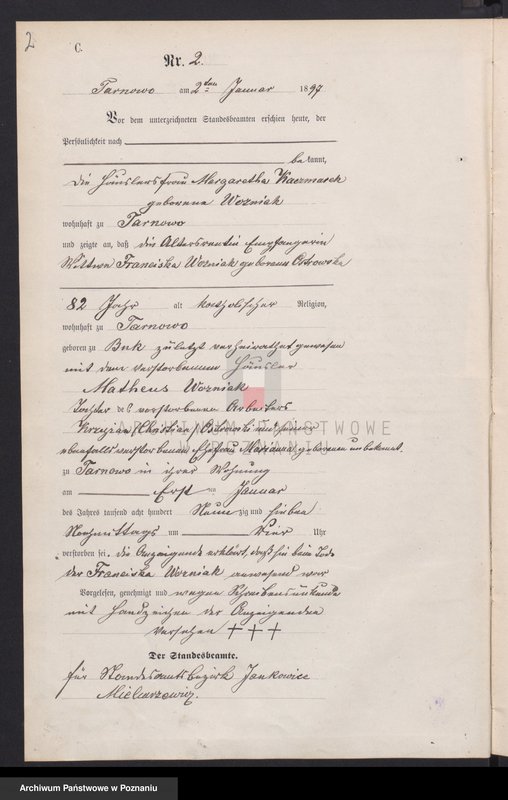 2
C.
Nr. 2.
Tarnowo am 2ten Januar 1897
Vor dem unterzeichneten Standesbeamten erschien heute, der
Persönlichkeit nach
bekannt,
die Häuslersfrau Margaretha Kaczmarek
geborene Wozniak
wohnhaft zu Tarnowo
und zeigte an, daß die Altersrentin Empfangerin
Wittwe Franciska Wozniak geborene Ostrowska
82 Jahr alt katholischer Religion,
wohnhaft zu Tarnowo
geboren zu Buk zuletzt verheirathet gewesen
mit dem verstorbenen Häusler
Matheus Wozniak
Tochter des verstorbenen Arbeiters
Ostrowski und seiner
ebenfalls verstorbenen Ehefrau Marianna geborenen unbekannt.
zu Tarnowo in ihrer Wohnung
am Erst ten Januar
des Jahres tausend acht hundert Neunzig und sieben
Nachmittags um Vier Uhr
verstorben sei. die Anzeigende erklärt, daß sie beim Tode
der Franciska Wozniak anwesend war
Vorgelesen, genehmigt und wegen Schreibensunkunde
mit Handzeichen der Anzeigenden
versehen + + +
Der Standesbeamte.
für Standesamtsbezirk Jankowice
ARCHIWUM PAŃSTWOWE
W POZNANIU
Archiwum Państwowe w Poznaniu